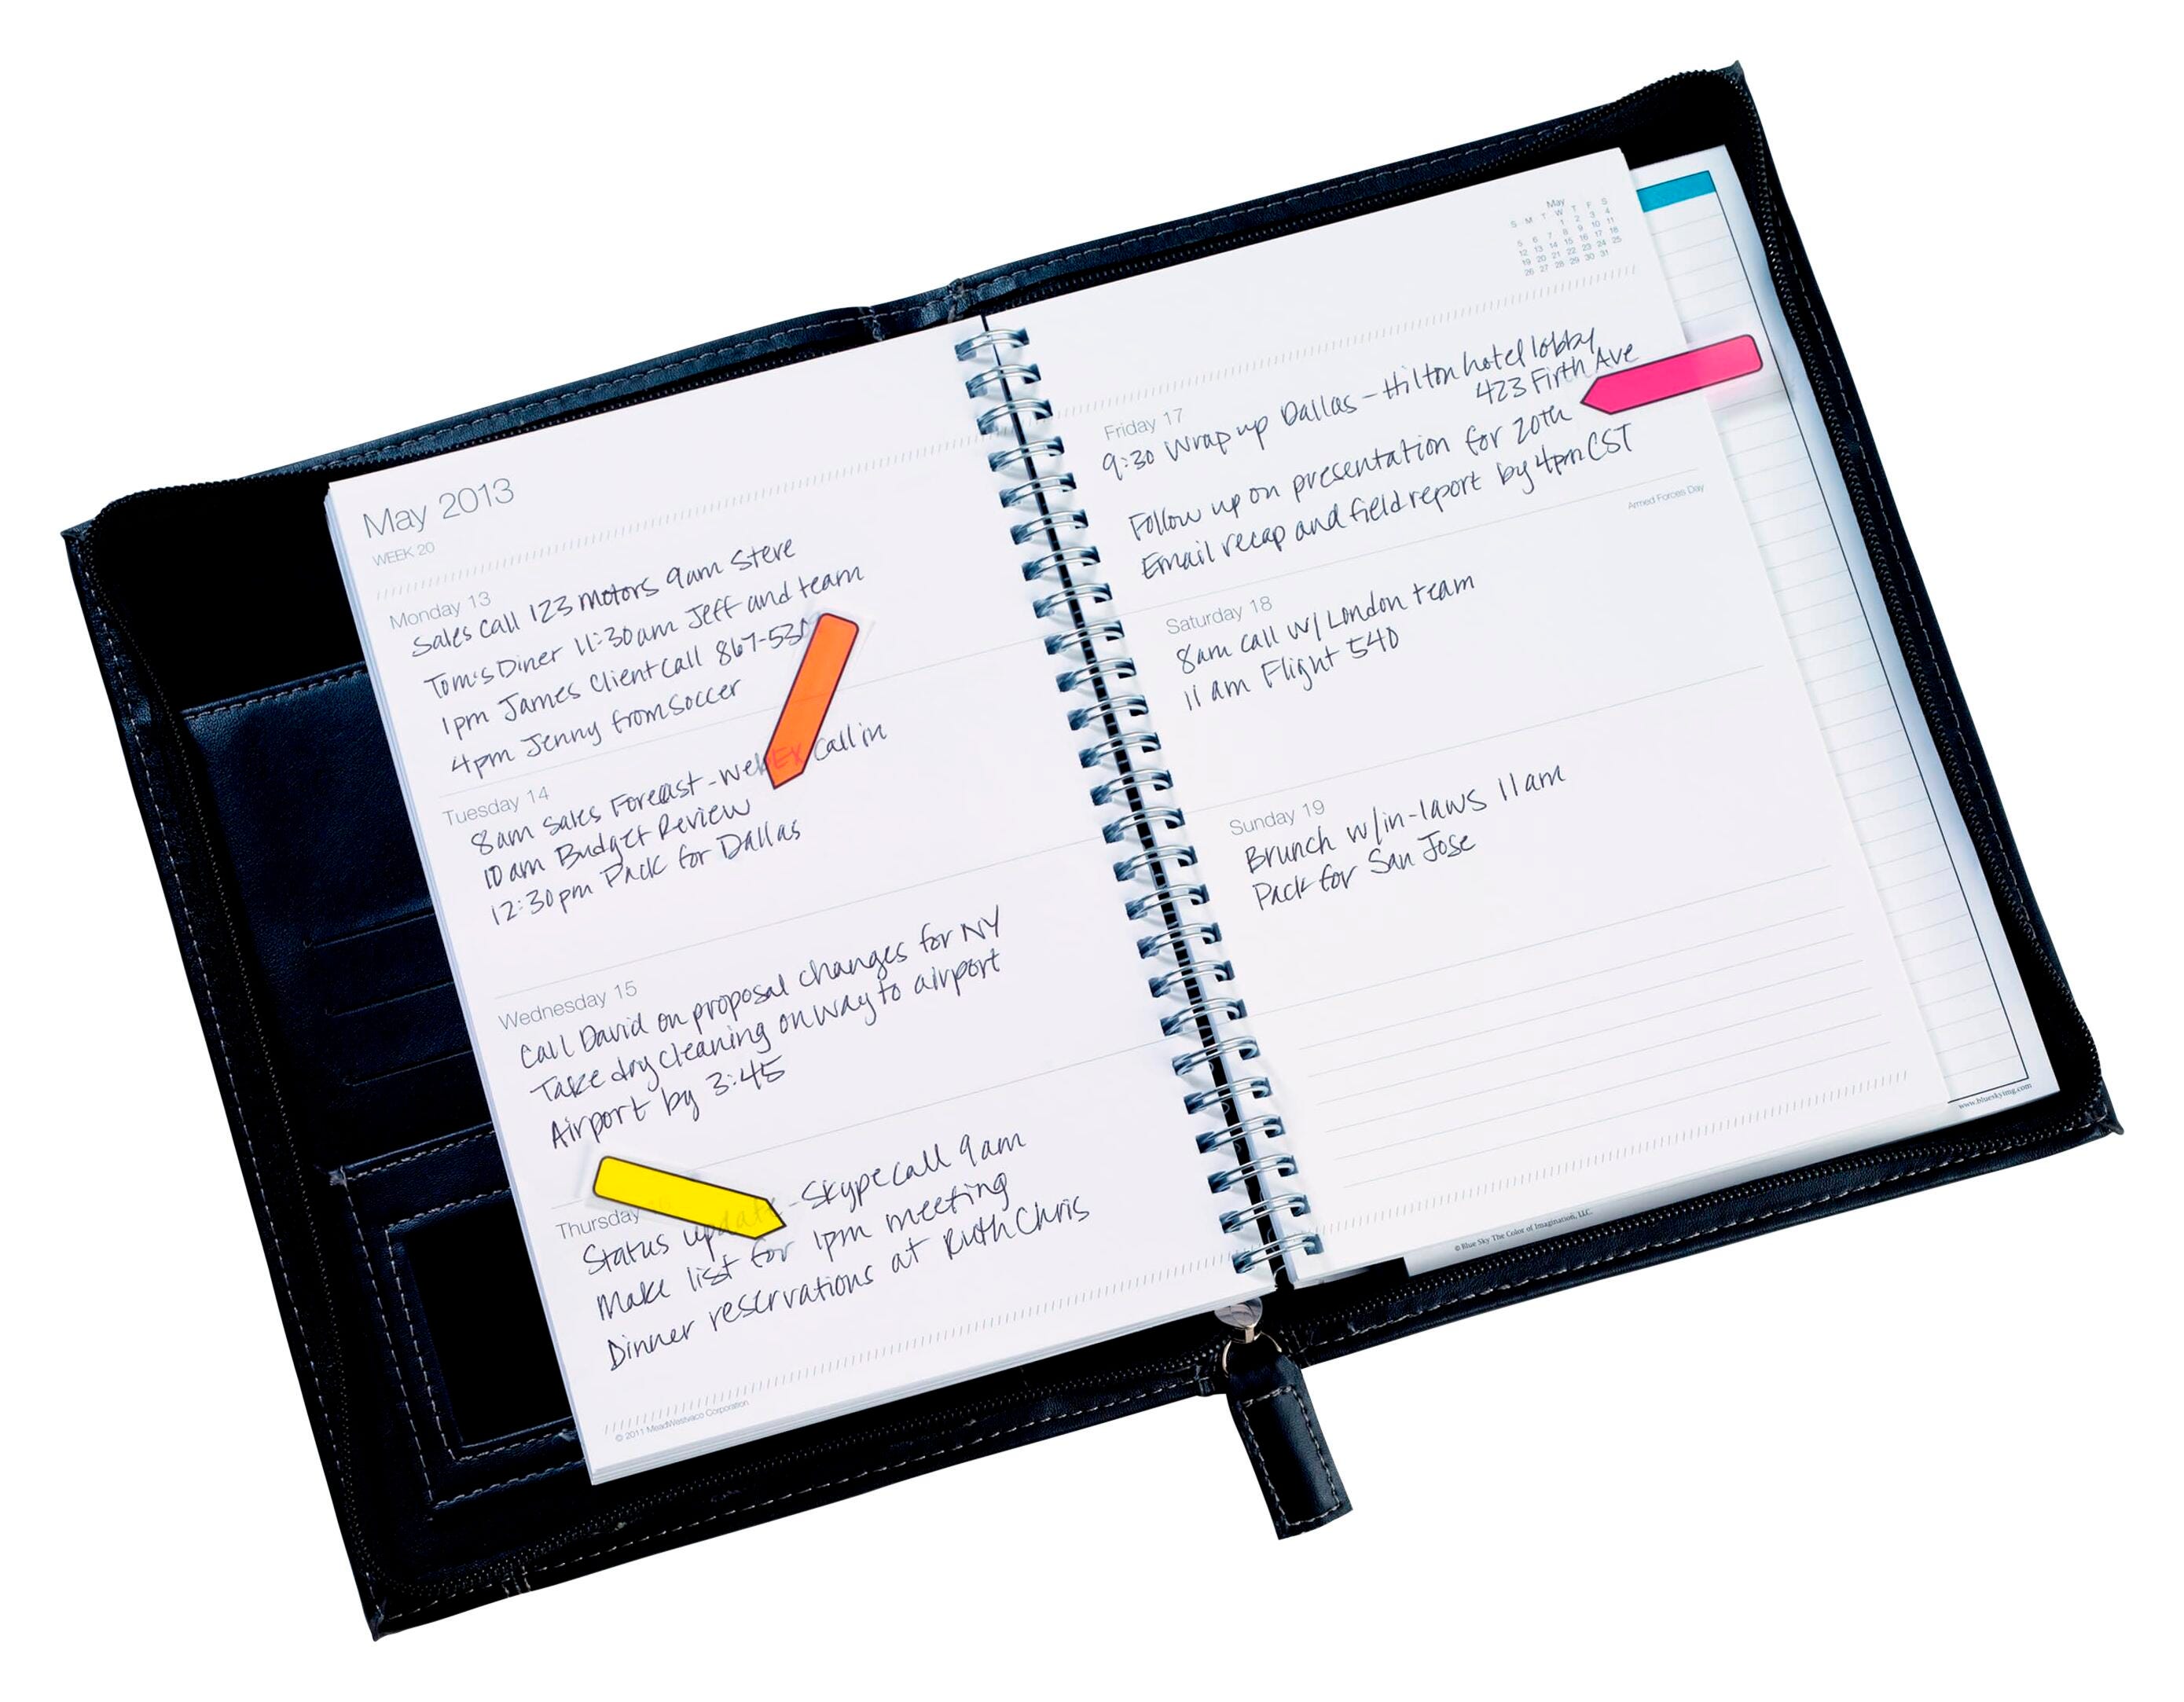 May 2013
WEEK 20
Monday 13
Sales call 123 Motors 9am Steve
Tom's Diner 11:30am Jeff and team
1pm James Client call 867-530
4pm Jenny from Soccer
Tuesday 14
8am Sales Forecast - WebEx Call in
10am Budget Review
12:30pm Pack for Dallas
Wednesday 15
Call David on proposal changes for NY
Take dry cleaning on way to airport
Airport by 3:45
Thursday
Status update - Skype call 9am
Make list for 1pm meeting
Dinner reservations at Ruth Chris
© 2011 MeadWestvaco Corporation
May
S M T W T F S
1 2 3 4
5 6 7 8 9 10 11
12 13 14 15 16 17 18
19 20 21 22 23 24 25
26 27 28 29 30 31
Friday 17
9:30 Wrap up Dallas - Hilton hotel lobby
423 Firth Ave
Follow up on presentation for 20th
Email recap and field report by 4pm CST
Armed Forces Day
Saturday 18
8am call w/ London team
11am Flight 540
Sunday 19
Brunch w/in-laws 11am
Pack for San Jose
www.blueskyimg.com
© Blue Sky The Color of Imagination, LLC.